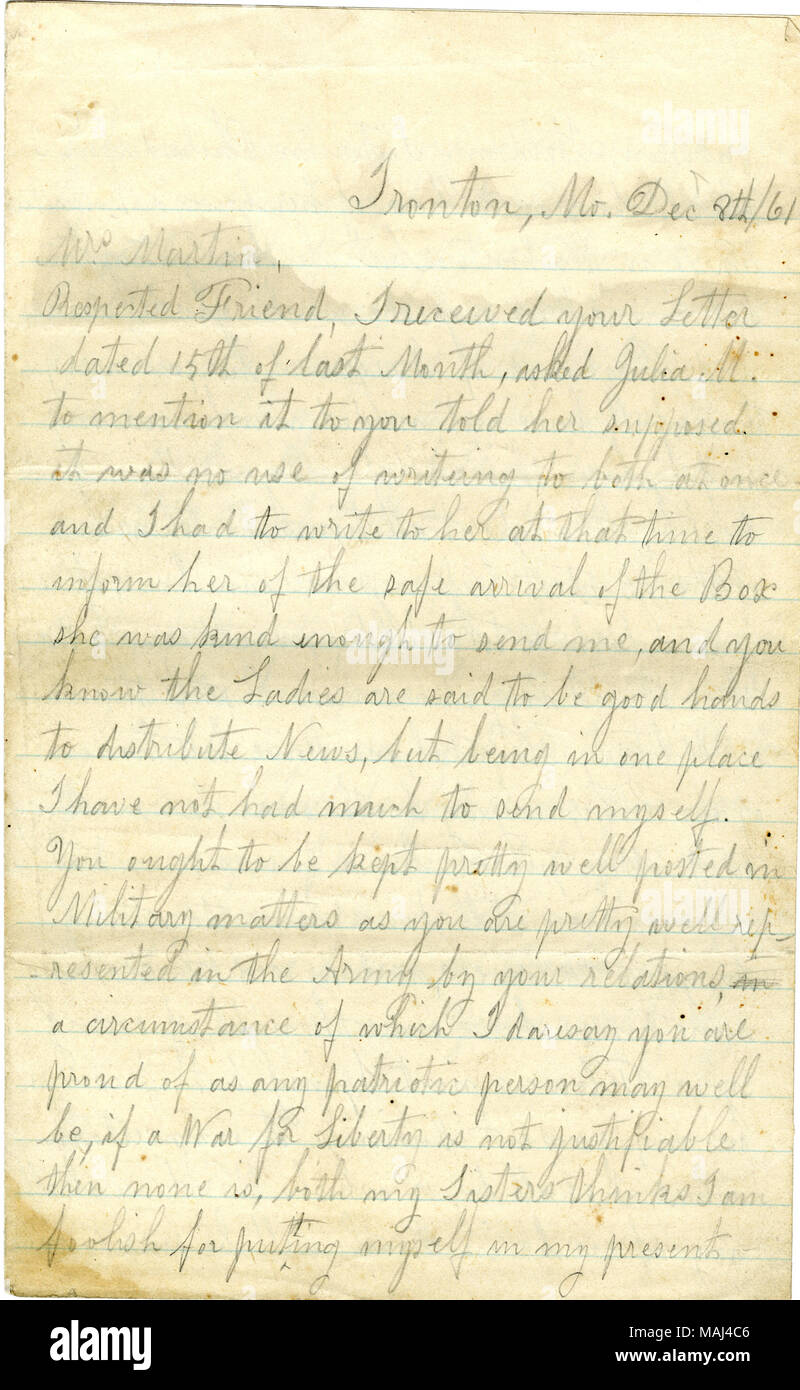 Ironton, Mo. Dec 8th/61
Mrs Martin,
Respected Friend, I received your Letter
dated 15th of last Month, asked Julia M.
to mention it to you told her supposed
it was no use of writeing to both at once
and I had to write to her at that time to
inform her of the safe arrival of the Box
she was kind enough to send me, and you
know the Ladies are said to be good hands
to distribute News, but being in one place
I have not had much to send myself.
You ought to be kept pretty well posted in
Military matters as you are pretty well rep-
resented in the Army by your relations, in
a circumstance of which I daresay you are
proud of as any patriotic person may well
be, if a War for Liberty is not justifiable
then none is, both my Sisters thinks I am
foolish for putting myself in my present
alamy
alamy
alamy
alamy
Image ID: MAJ4C6
www.alamy.com